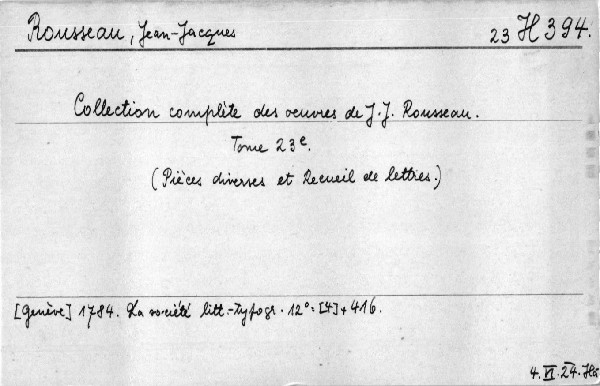 Rousseau, Jean-Jacques 23 H 394.
Collection complète des oeuvres de J. J. Rousseau.
Tome 23e.
(Pièces diverses et Recueil de lettres.)
[Genève] 1784. La société litt.-typogr. 12°: [4] + 416.
4. VI. 24. Hä